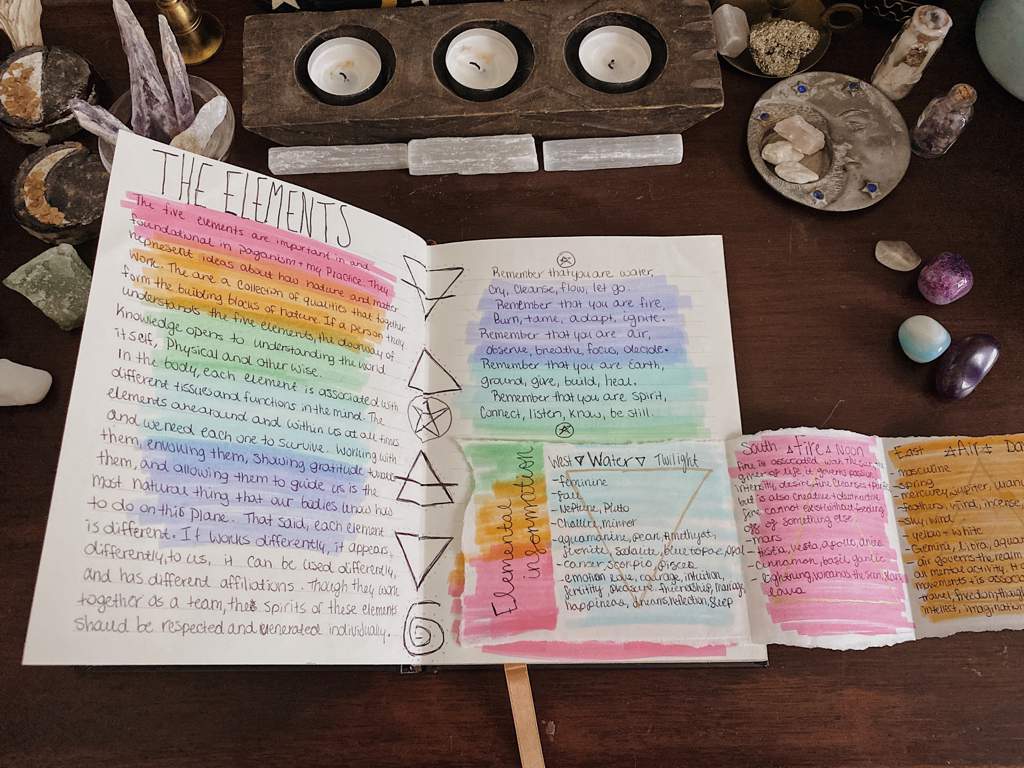 THE ELEMENTS
The five elements are important in and
foundational in paganism + my practice. They
represent ideas about how nature and matter
work. The are a collection of qualities that together
form the building blocks of nature. If a person truly
understands the five elements, the doorway of
knowledge opens to understanding the world
itself, Physical and other wise.
In the body, each element is associated with
different tissues and functions in the mind. The
elements are around and within us at all times
and we need each one to survive. Working with
them, envoking them, showing gratitude towards
them, and allowing them to guide us is the
most natural thing that our bodies know how
to do on this plane. That said, each element
is different. It works differently, it appears
differently to us, it can be used differently,
and has different affiliations. Though they work
together as a team, the spirits of these elements
should be respected and venerated individually.
Remember that you are water,
Cry, Cleanse, flow, let go.
Remember that you are fire,
Burn, tame, adapt, ignite.
Remember that you are air,
observe, breathe, focus, decide.
Remember that you are Earth,
ground, give, build, heal.
Remember that you are spirit,
Connect, listen, know, be still.
Elemental
information
West Water Twilight
- feminine
- Fall
- Neptune, Pluto
- Challice, mirror
- aquamarine, pearl, Amethyst,
- cancer, scorpio, pisces
- emotion, courage, intuition,
fertility, pleasure, friendship, marriage,
happiness, dreams, reflection, sleep
South Fire Noon
Fire is associated with the sun
giver of life it governs passion
intensity, desire. Fire
is also creative + destructive
fire cannot exist without feeding
off of something else
- mars
- hestia, vesta, apollo, ares
- cinnamon, basil, garlic
- lightning, volcanos, the sun,
lava
East Air
- masculine
- spring
- mercury, jupiter,
- feathers, wind, incense
- sky, wind
- yellow + white
- Gemini, libra,
- air governs the realm
movement is
- travel, freedom,
intellect,